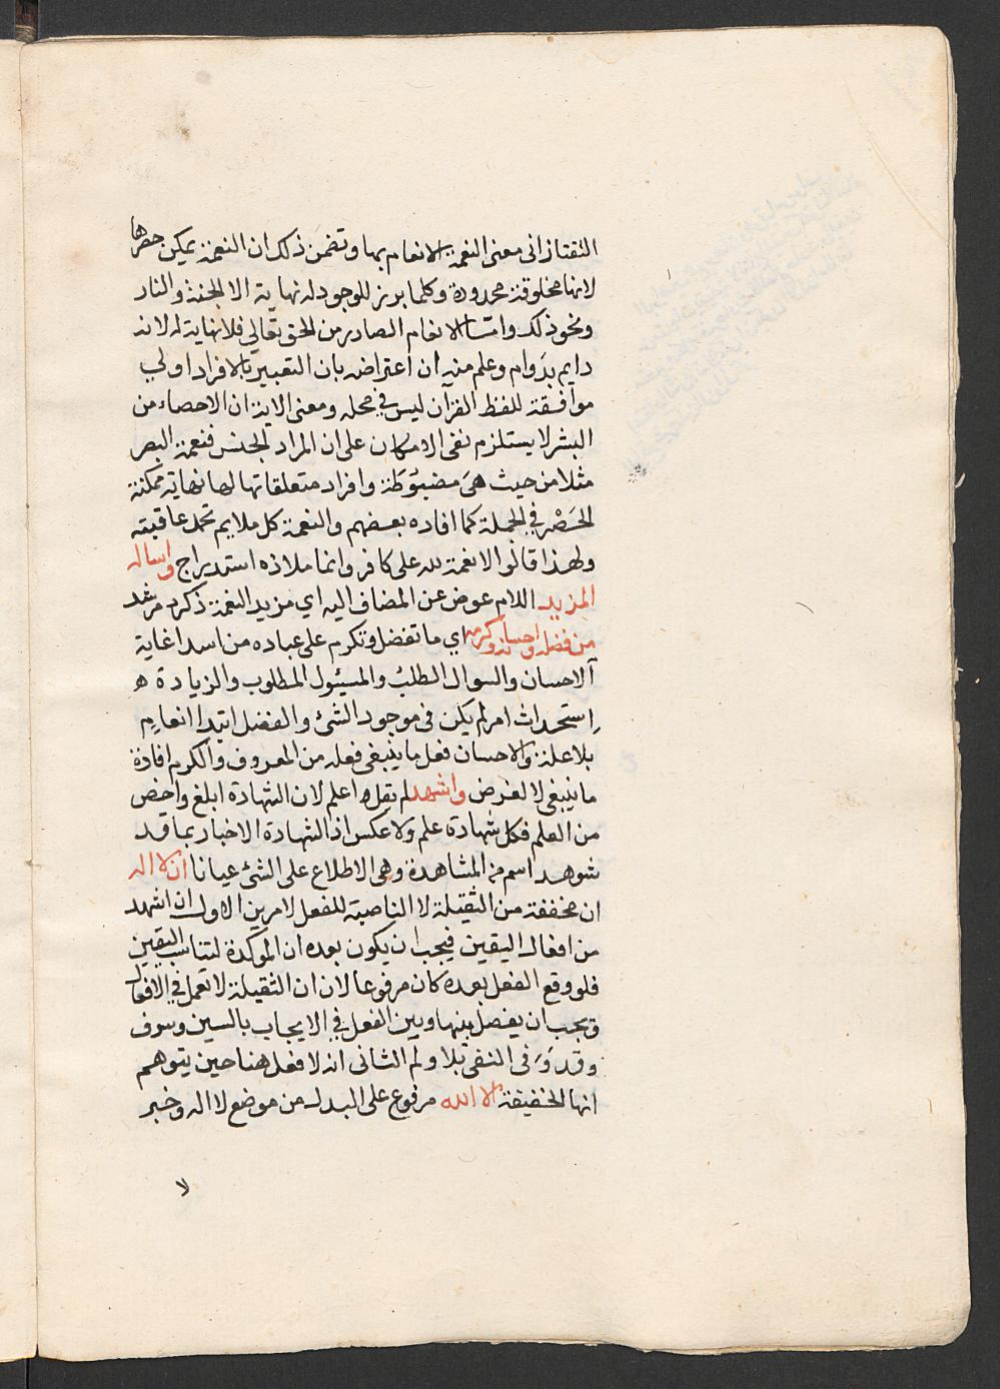 التفتازانى معنى النعمة الانعام بها وتضمن ذلك ان النعمة يمكن حصرها
لانها مخلوقة محدودة وكلما برز للوجود له نهاية الا الجنة والنار
ونحو ذلك واما الانعام الصادر من الحق تعالي فلا نهاية له لانه
دايم بدَوام وعلم منه ان اعتراضه بان التعبير بالافراد اولي
موافقة للفظ القرآن ليس في محله ومعنى الاية ان الاحصاء من
البشر لا يستلزم نفى الامكان على ان المراد الجنس فنعمة البصر
مثلا من حيث هىَ مضبوطَة وافراد متعلقاتها لها نهاية ممكنة
الحَصْر في الجملة كما افاده بعضهم والنعمة كل ملايم تحمد عاقبته
ولهذا قالوا لا نعمة لله على كافر وانما ملاذه استدراج واساله
المزيد اللام عوض عن المضاف اليه اي مزيد النعمة ذكره مرشد
من فضله واحسانه وكرمه اي ما تفضل وتكرم على عباده من اسدا غاية
الاحسان والسوال الطلب والمسئول المطلوب والزيادة ه
استحداث امر لم يكن فى موجود الشئ والفضل ابتدا انعام
بلا علة والاحسان فعل ما ينبغى فعله من المعروف والكرم افادة
ما ينبغى لا لغرض واشهد لم يقل اعلم لان الشهادة ابلغ واخص
من العلم فكل شهادة علم ولا عكس اذ الشهادة الاخبار بما قد
شوهد اسم من المشاهدة وهى الاطلاع على الشئ عيانا ان لا اله
ان مخففة من الثقيلة لا الناصبة للفعل لامرين الاول ان اشهد
من افعال اليقين فيجب ان يكون بعده ان الموكدة ليتناسب اليقين
فلو وقع الفعل بعده كان مرفوعا لان ان الثقيلة لا تعمل في الافعال
ويجب ان يفصل بينها وبين الفعل في الايجاب بالسين وسوف
وقد وَفى النفى بلا ولم الثانى انه لا فعل هنا حين يتوهم
انها الخفيفة الا الله مرفوع على البدل من موضع لا اله وخبر
لا